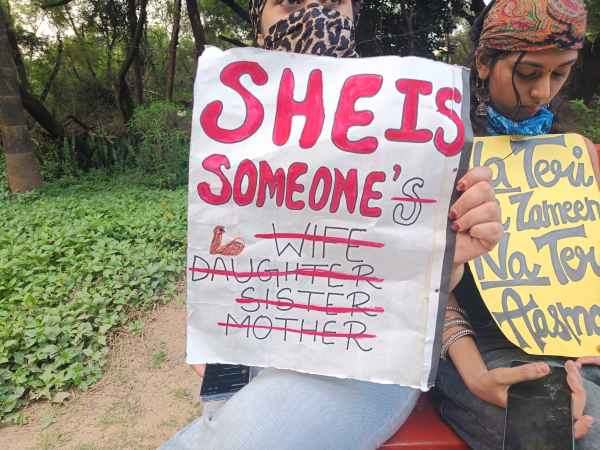 SHE IS
SOMEONE'S
WIFE
DAUGHTER
SISTER
MOTHER
Na Teri
Zameen
Na Teri
Aasma